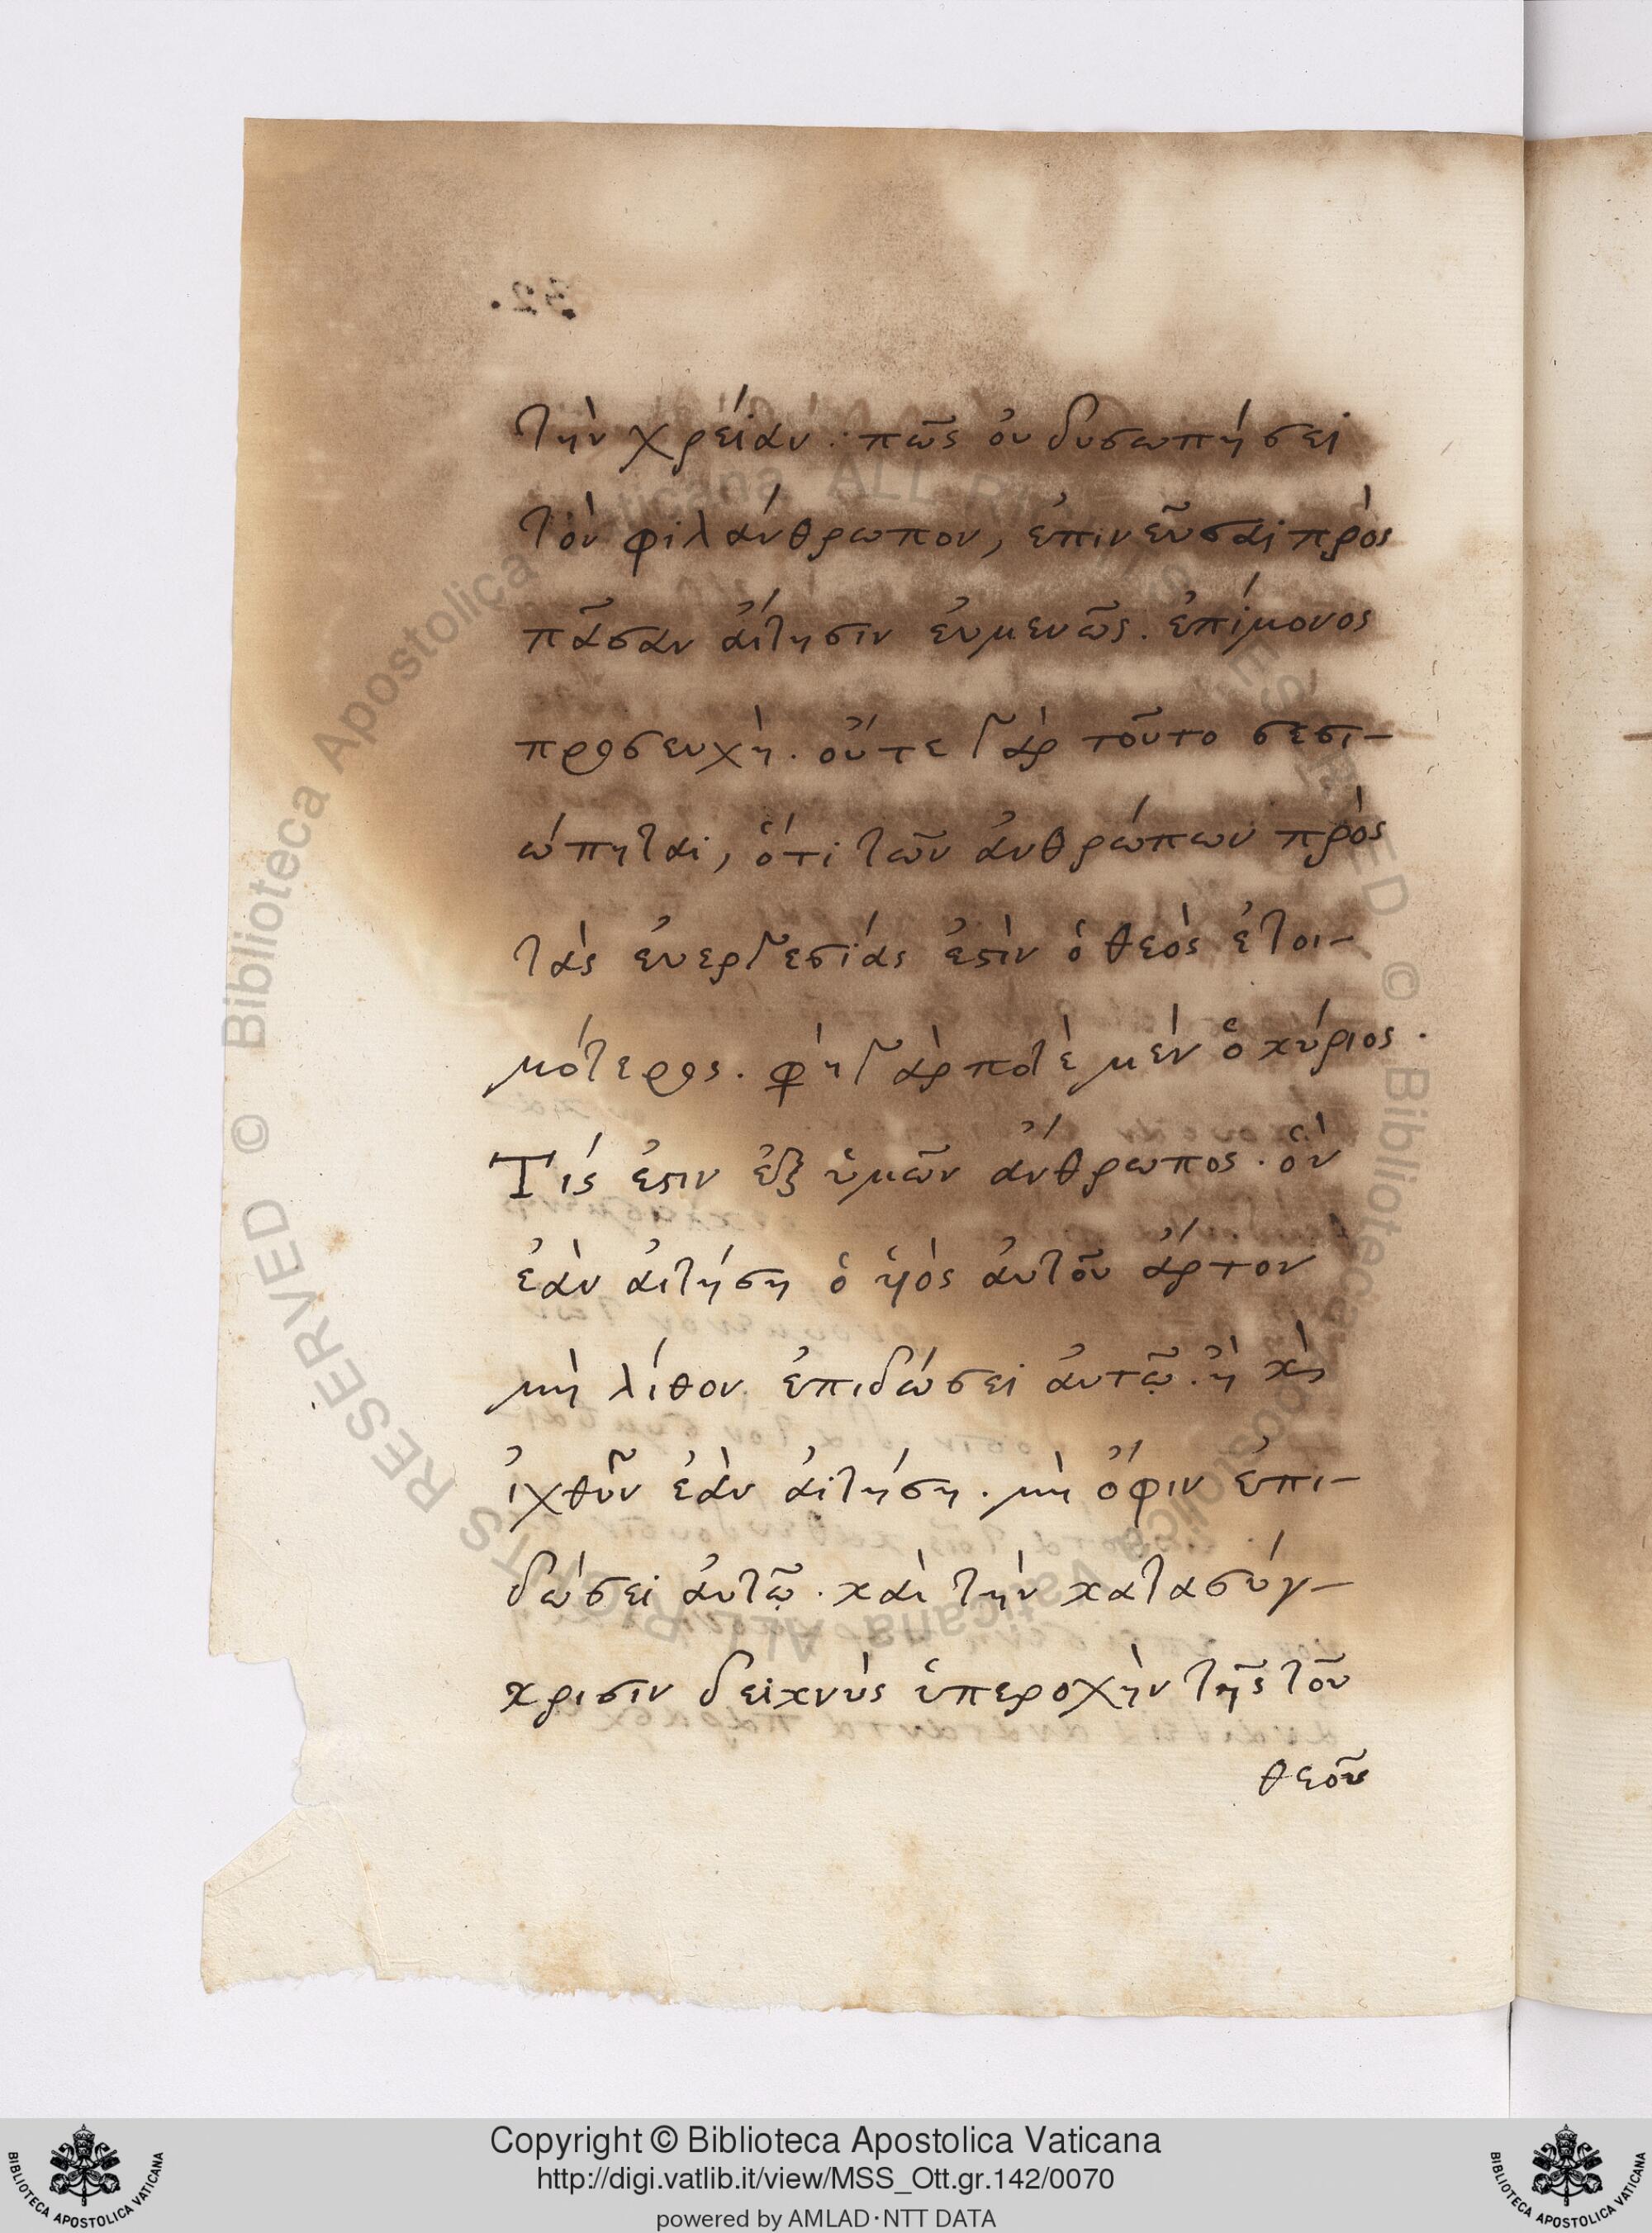 32.
τὴν χρείαν· πῶς οὐ δυσωπήσει
τὸν φιλάνθρωπον, ἐπινεῦσαι πρὸς
πᾶσαν αἴτησιν εὐμενῶς. ἐπίμονος
προσευχὴ. οὔτε γὰρ τοῦτο σεσι-
ώπηται, ὅτι τῶν ἀνθρώπων πρὸς
τὰς εὐεργεσίας ἐστὶν ὁ θεὸς ἑτοι-
μότερος. φὴ γὰρ ποτὲ μὲν ὁ κύριος.
Τίς ἐστιν ἐξ ὑμῶν ἄνθρωπος. ὃν
ἐὰν αἰτήση ὁ ὑιὸς αὐτοῦ ἄρτον
μὴ λίθον ἐπιδώσει αὐτῷ. ἢ κὶ
ἰχθῦν ἐὰν αἰτήση. μὴ ὄφιν ἐπι-
δώσει αὐτῷ. καὶ τὴν κατασύγ-
κρισιν δεικνὺς ὑπεροχὴν τῆς τοῦ
θεοῦ
Copyright © Biblioteca Apostolica Vaticana
http://digi.vatlib.it/view/MSS_Ott.gr.142/0070
powered by AMLAD·NTT DATA
BIBLIOTECA APOSTOLICA VATICANA
BIBLIOTECA APOSTOLICA VATICANA
© Biblioteca Apostolica Vaticana ALL RIGHTS RESERVED © Biblioteca Apostolica Vaticana ALL RIGHTS RESERVED